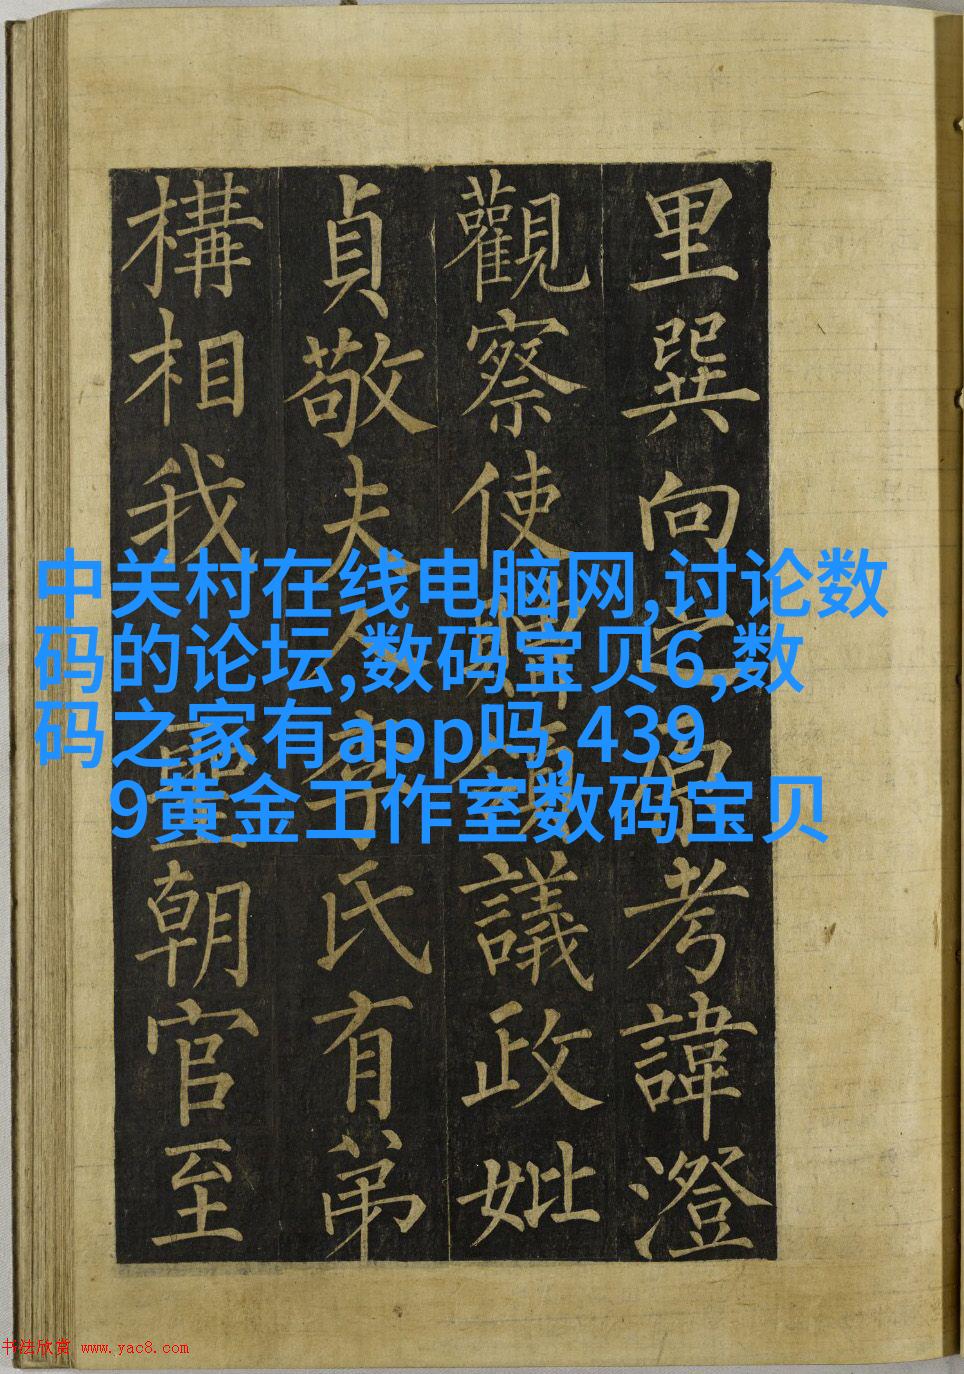 里巽向之原考諱澄
觀察使贈議政妣
貞敬夫人李氏有弟
構相我聖朝官至
中关村在线电脑网,讨论数
码的论坛,数码宝贝6,数
码之家有app吗,439
9黄金工作室数码宝贝
书法欣赏 www.yac8.com